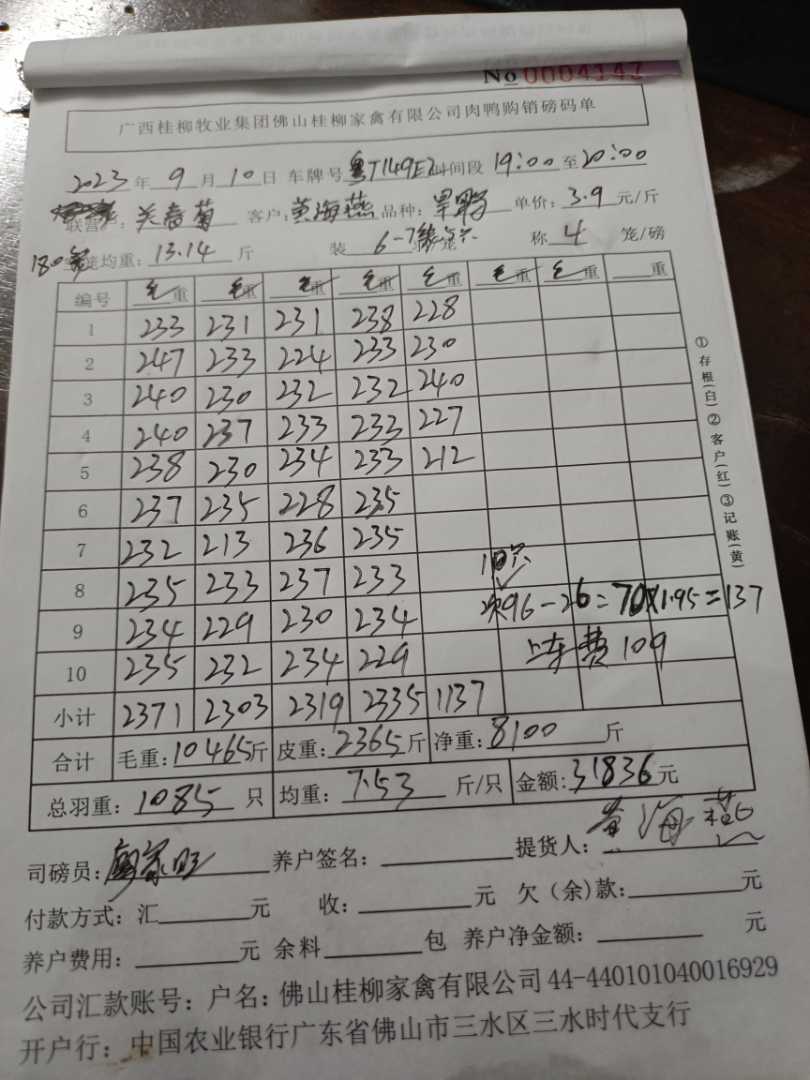 No 0004147
广西桂柳牧业集团佛山桂柳家禽有限公司肉鸭购销磅码单
2023 年 9 月 10 日 车牌号 粤T149E2 时间段 19:00 至 20:00
联营 : 关春菊 客户: 黄海燕 品种: 旱鸭 单价: 3.9 元/斤
180笼 笼均重: 13.14 斤 装 6-7 笼 称 4 笼/磅
编号 毛重 毛重 毛重 毛重 毛重 毛重 毛重 重
1 233 231 231 238 228
2 247 233 224 233 230
3 240 230 232 232 240
4 240 237 233 233 227
5 238 230 234 233 212
6 237 235 228 235
7 232 213 236 235
8 235 233 237 233
9 234 229 230 234 次96-26=70×1.95=137
10 235 232 234 229 上车费109
小计 2371 2303 2319 2335 1137
合计 毛重: 10465 斤 皮重: 2365 斤 净重: 8100 斤
总羽重: 1085 只 均重: 7.53 斤/只 金额: 31836 元
司磅员: 廖家旺 养户签名: 提货人: 黄海燕
付款方式: 汇 元 收: 元 欠(余)款: 元
养户费用: 元 余料 包 养户净金额: 元
公司汇款账号: 户名: 佛山桂柳家禽有限公司 44-440101040016929
开户行: 中国农业银行广东省佛山市三水区三水时代支行
①存根(白)②客户(红)③记账(黄)